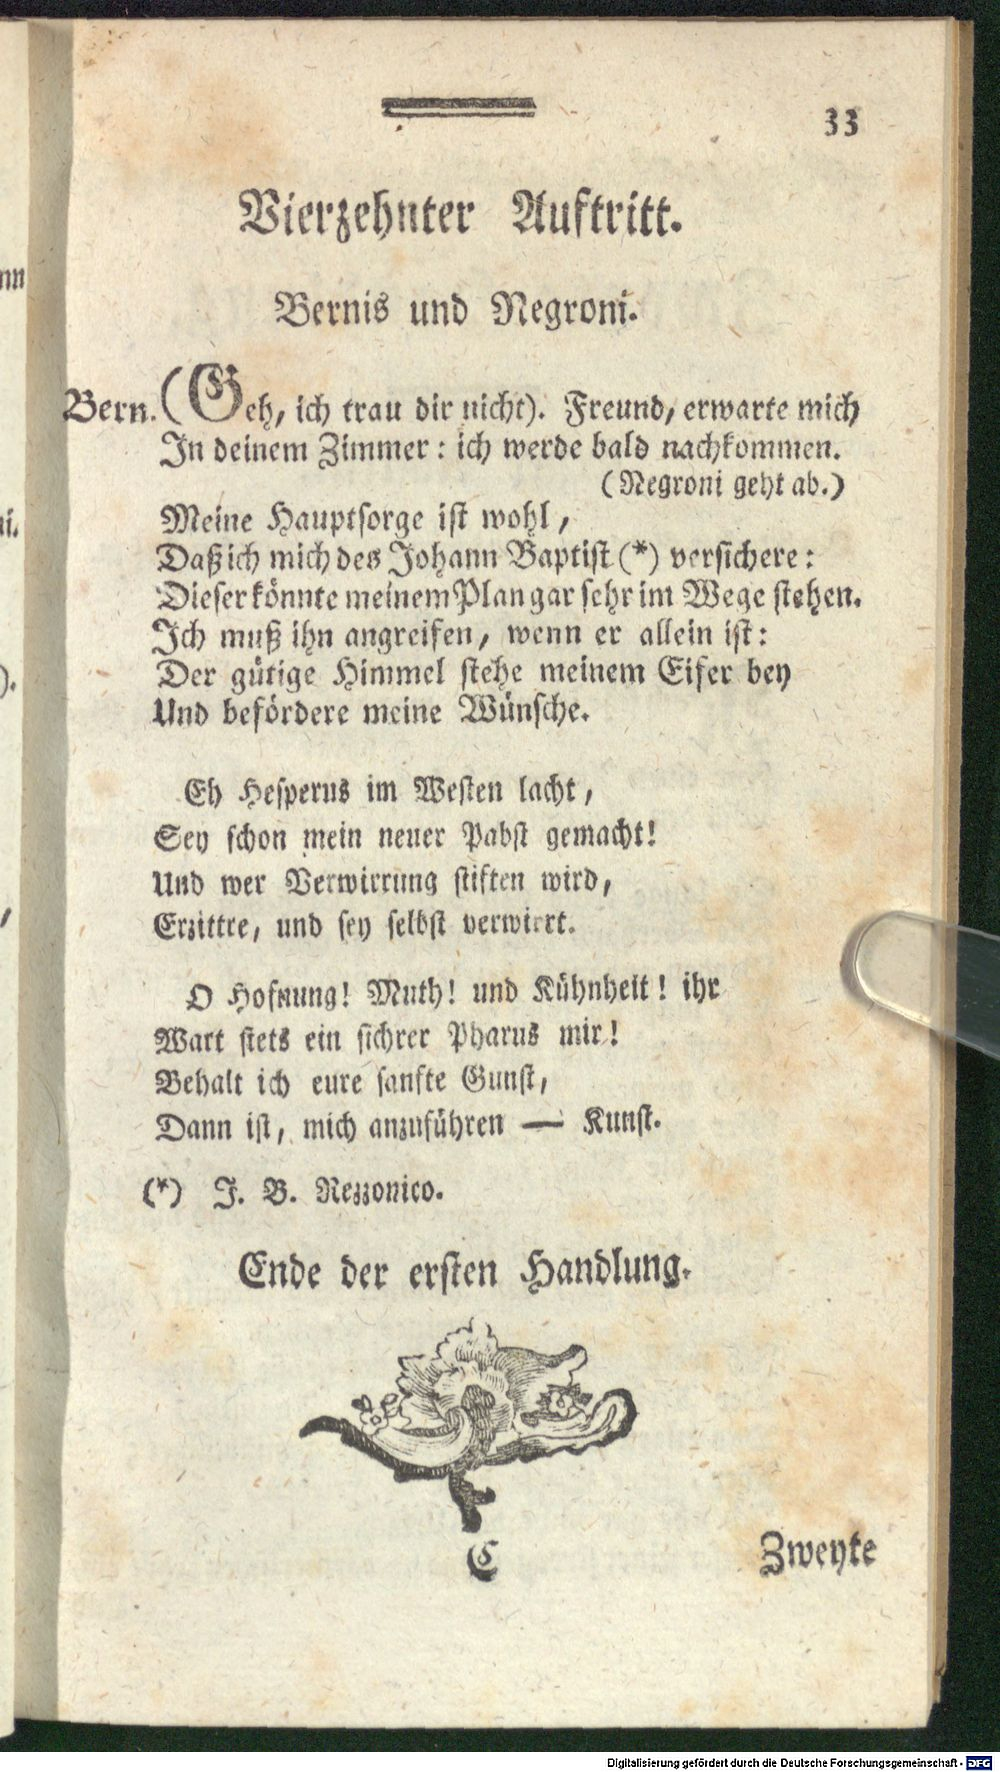 33
Vierzehnter Auftritt.
Bernis und Negroni.
Bern. (Geh, ich trau dir nicht). Freund, erwarte mich
In deinem Zimmer: ich werde bald nachkommen.
(Negroni geht ab.)
Meine Hauptsorge ist wohl,
Daß ich mich des Johann Baptist (*) versichere:
Dieser könnte meinem Plan gar sehr im Wege stehen.
Ich muß ihn angreifen, wenn er allein ist:
Der gütige Himmel stehe meinem Eifer bey
Und befördere meine Wünsche.
Eh Hesperus im Westen lacht,
Sey schon mein neuer Pabst gemacht!
Und wer Verwirrung stiften wird,
Erzittre, und sey selbst verwirrt.
O Hofnung! Muth! und Kühnheit! ihr
Wart stets ein sichrer Pharus mir!
Behalt ich eure sanfte Gunst,
Dann ist, mich anzuführen — Kunst.
(*) J. B. Rezzonico.
Ende der ersten Handlung.
C
Zweyte
nn
ni.
).
,
Digitalisierung gefördert durch die Deutsche Forschungsgemeinschaft - DFG